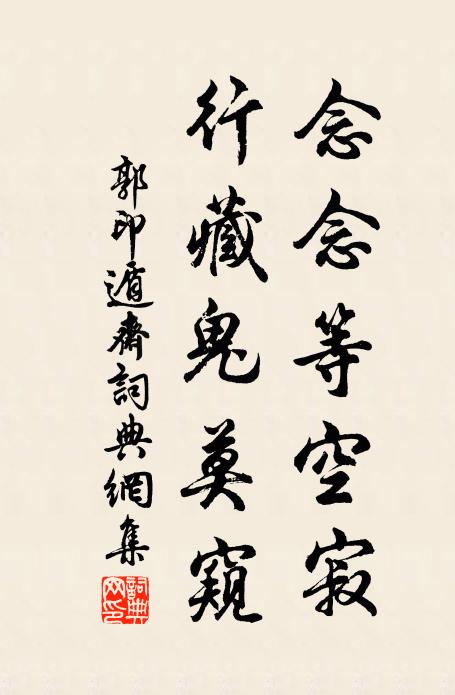 念念等空寂
行藏鬼莫窺
郭印遁齋詞典網集
詞典网印